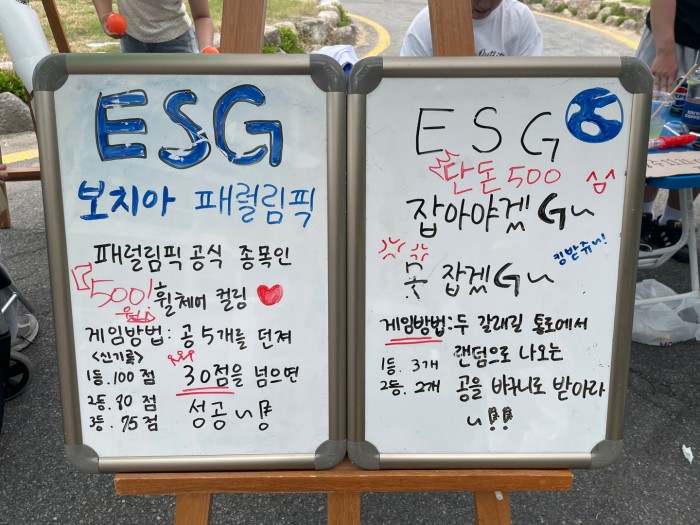 ESG
보치아 패럴림픽
패럴림픽 공식 종목인
500!
원
휠체어 컬링
게임방법: 공 5개를 던져
<신기록>
1등. 100 점
30점을 넘으면
2등. 80 점
성공~!
3등. 75점
ESG
단돈 500
^^
잡아야겠 G~
못 잡겠 G~
킹받쥬~!
게임방법: 두 갈래길 통로에서
1등. 3개
랜덤으로 나오는
2등. 2개
공을 바구니로 받아라
~!!